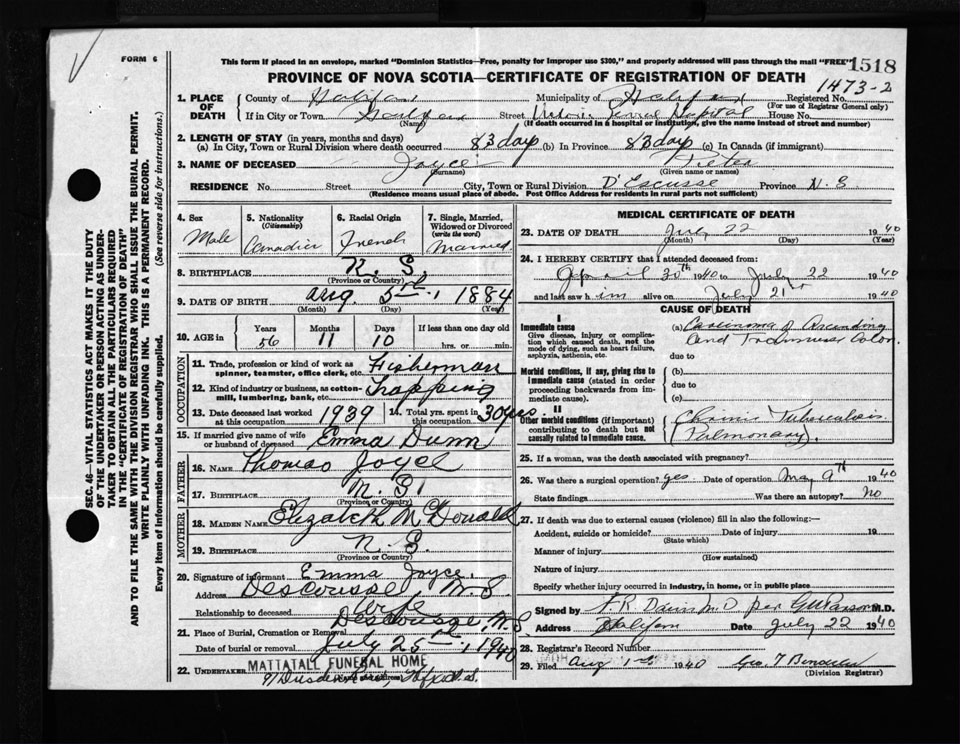 FORM 6
This form if placed in an envelope, marked "Dominion Statistics—Free, penalty for improper use $300," and properly addressed will pass through the mail "FREE"
1518
PROVINCE OF NOVA SCOTIA—CERTIFICATE OF REGISTRATION OF DEATH
1473-2
1. PLACE OF DEATH
County of Halifax Municipality of Halifax Registered No.
(For use of Registrar General only)
If in City or Town Halifax Street Victoria General Hospital House No.
(Name) (If death occurred in a hospital or institution, give the name instead of street and number)
2. LENGTH OF STAY (in years, months and days)
(a) In City, Town or Rural Division where death occurred 83 days (b) In Province 83 days (c) In Canada (if immigrant)
3. NAME OF DECEASED Joyce Peter
(Surname) (Given name or names)
RESIDENCE No. Street City, Town or Rural Division D'Escusse Province N.S
(Residence means usual place of abode. Post Office Address for residents in rural parts not sufficient)
4. Sex Male
5. Nationality (Citizenship) Canadian
6. Racial Origin French
7. Single, Married, Widowed or Divorced (write the word) Married
8. BIRTHPLACE N. S.
(Province or Country)
9. DATE OF BIRTH Aug. 5th, 1884
(Month) (Day) (Year)
10. AGE in Years 56 Months 11 Days 10 If less than one day old hrs. or min.
OCCUPATION
11. Trade, profession or kind of work as spinner, teamster, office clerk, etc. Fisherman
12. Kind of industry or business, as cotton-mill, lumbering, bank, etc. Trapping
13. Date deceased last worked at this occupation 1939
14. Total yrs. spent in this occupation 30 yrs.
15. If married give name of wife or husband of deceased Emma Dunn
FATHER
16. Name Thomas Joyce
17. Birthplace N. S.
(Province or Country)
MOTHER
18. MAIDEN NAME Elizabeth McDonald
19. BIRTHPLACE N. S.
(Province or Country)
20. Signature of informant Emma Joyce
Address Descousse N. S.
Relationship to deceased Wife
21. Place of Burial, Cremation or Removal Descousse, N.S.
Date of burial or removal July 25th, 1940
22. UNDERTAKER MATTATALL FUNERAL HOME
(Name and address)
MEDICAL CERTIFICATE OF DEATH
23. DATE OF DEATH July 22 1940
(Month) (Day) (Year)
24. I HEREBY CERTIFY that I attended deceased from:
April 30th 1940 to July 22 1940
and last saw him alive on July 21 1940
CAUSE OF DEATH
I
Immediate cause
Give disease, injury or complication which caused death, not the mode of dying, such as heart failure, asphyxia, asthenia, etc.
(a) Carcinoma of Ascending and Transverse Colon
due to
Morbid conditions, if any, giving rise to immediate cause (stated in order proceeding backwards from immediate cause).
(b)
due to
(c)
II
Other morbid conditions (if important) contributing to death but not causally related to immediate cause.
Chronic Tuberculosis Pulmonary
25. If a woman, was the death associated with pregnancy?
26. Was there a surgical operation? yes Date of operation May 9th 1940
State findings Was there an autopsy? No
27. If death was due to external causes (violence) fill in also the following:
Accident, suicide or homicide? Date of injury 19
(State which)
Manner of injury
(How sustained)
Nature of injury
Specify whether injury occurred in industry, in home, or in public place
Signed by M.D.
Address Halifax Date July 22 1940
28. Registrar's Record Number
29. Filed Aug 1st 1940
(Division Registrar)
SEC. 46—VITAL STATISTICS ACT MAKES IT THE DUTY
OF THE UNDERTAKER OR PERSON ACTING AS UNDER-
TAKER TO OBTAIN ALL THE PARTICULARS REQUIRED
IN THE "CERTIFICATE OF REGISTRATION OF DEATH"
AND TO FILE THE SAME WITH THE DIVISION REGISTRAR WHO SHALL ISSUE THE BURIAL PERMIT.
WRITE PLAINLY WITH UNFADING INK. THIS IS A PERMANENT RECORD.
Every item of information should be carefully supplied. (See reverse side for instructions.)